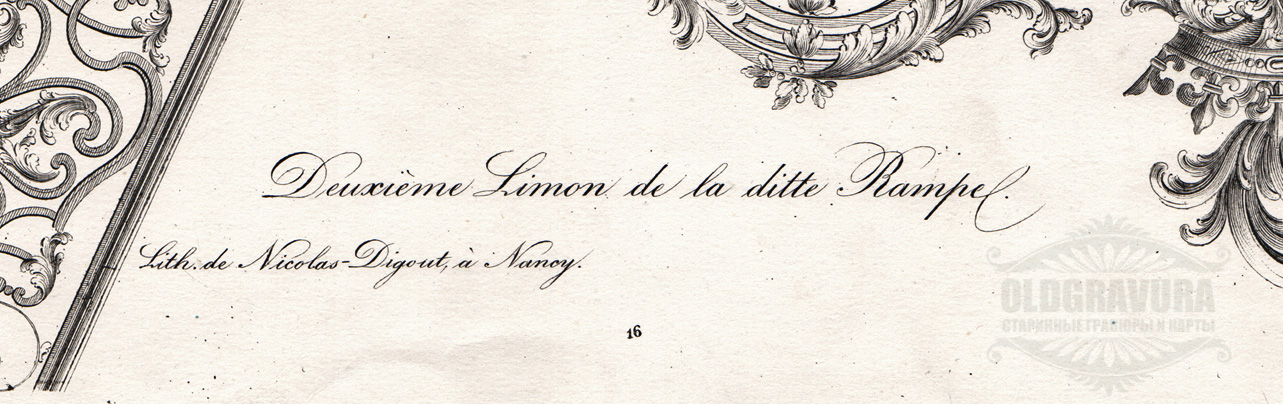 Deuxième Limon de la ditte Rampe.
Lith. de Nicolas-Digout, à Nancy.
16
OLDGRAVURA
СТАРИННЫЕ ГРАВЮРЫ И КАРТЫ